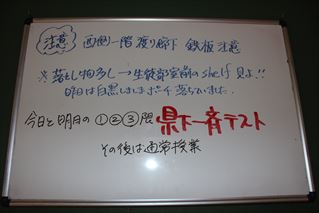 注意 西側一階 渡り廊下 鉄板 注意
※落とし物多し→生徒部室前のshelf 見よ!!
昨日は白黒しましまポーチ落ちていました。
今日と明日の①②③限 県下一斉テスト
その後は通常授業